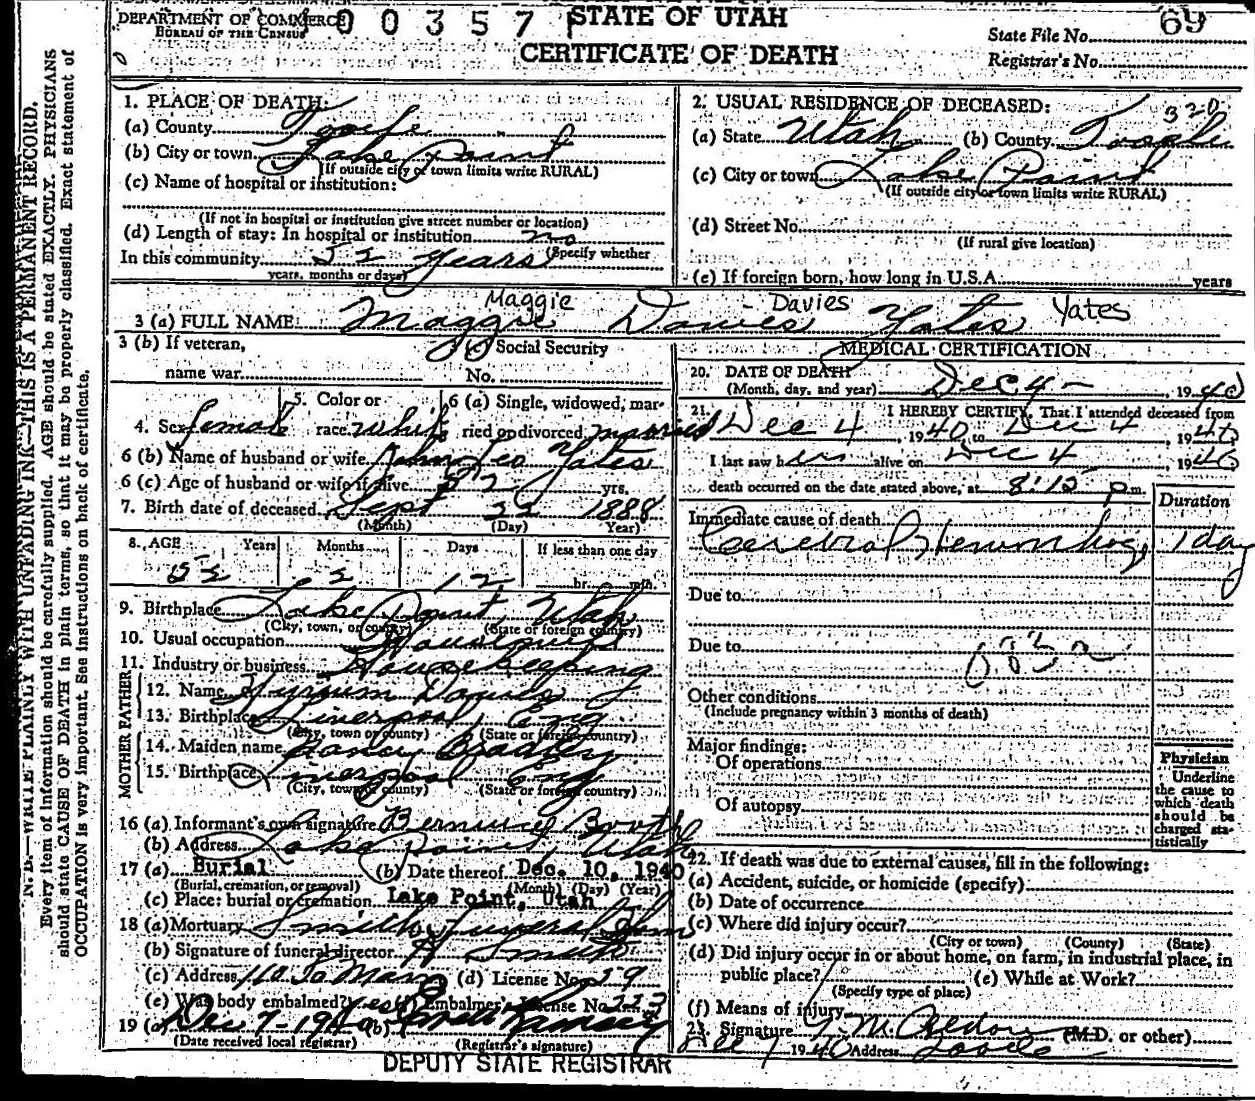 DEPARTMENT OF COMMERCE
BUREAU OF THE CENSUS
00357
STATE OF UTAH
CERTIFICATE OF DEATH
State File No. 69
Registrar's No.
N.B.—WRITE PLAINLY WITH UNFADING INK—THIS IS A PERMANENT RECORD.
Every item of information should be carefully supplied. AGE should be stated EXACTLY. PHYSICIANS
should state CAUSE OF DEATH in plain terms, so that it may be properly classified. Exact statement of
OCCUPATION is very important. See instructions on back of certificate.
1. PLACE OF DEATH:
(a) County Tooele
(b) City or town Lake Point
(If outside city or town limits write RURAL)
(c) Name of hospital or institution:
(If not in hospital or institution give street number or location)
(d) Length of stay: In hospital or institution no
(Specify whether
In this community 52 years
years, months or days)
2. USUAL RESIDENCE OF DECEASED:
320
(a) State Utah (b) County Tooele
(c) City or town Lake Point
(If outside city or town limits write RURAL)
(d) Street No.
(If rural give location)
(e) If foreign born, how long in U.S.A. years
Maggie Davies Yates
3 (a) FULL NAME: Maggie Davies Yates
3 (b) If veteran,
name war
Social Security
No.
4. Sex female
5. Color or
race white
6 (a) Single, widowed, mar-
ried or divorced married
6 (b) Name of husband or wife John Leo Yates
6 (c) Age of husband or wife if alive 52 yrs.
7. Birth date of deceased Sept 22 1888
(Month) (Day) Year)
8. AGE Years Months Days If less than one day
52 2 12 hr. min.
9. Birthplace Lake Point, Utah
(City, town, or county) (State or foreign country)
10. Usual occupation Housewife
11. Industry or business Housekeeping
FATHER
12. Name Hyrum Davies
13. Birthplace Liverpool, Eng
(City, town or county) (State or foreign country)
MOTHER
14. Maiden name Nancy Bradley
15. Birthplace Liverpool Eng
(City, town or county) (State or foreign country)
16 (a) Informant's own signature Bernice Booth
(b) Address Lake Point, Utah
17 (a) Burial (b) Date thereof Dec. 10, 1940
(Burial, cremation, or removal) (Month) (Day) (Year)
(c) Place: burial or cremation Lake Point, Utah
18 (a) Mortuary Smith Funeral Home
(b) Signature of funeral director Smith
(c) Address 110 So Main (d) License No. 29
(e) Was body embalmed? yes (f) Embalmer's License No. 223
19 (a) Dec 7-1940 (b) Ramsey
(Date received local registrar) (Registrar's signature)
DEPUTY STATE REGISTRAR
MEDICAL CERTIFICATION
20. DATE OF DEATH
(Month, day, and year) Dec 4 - , 1940
21. I HEREBY CERTIFY, That I attended deceased from
Dec 4, 1940, to Dec 4, 1940
I last saw her alive on Dec 4, 1940
death occurred on the date stated above, at 8:15 p.m.
Duration
Immediate cause of death
Cerebral Hemorrhage 1 day
Due to
Due to
Other conditions
(Include pregnancy within 3 months of death)
Major findings:
Of operations
Of autopsy
Physician
Underline
the cause to
which death
should be
charged sta-
tistically
22. If death was due to external causes, fill in the following:
(a) Accident, suicide, or homicide (specify)
(b) Date of occurrence
(c) Where did injury occur?
(City or town) (County) (State)
(d) Did injury occur in or about home, on farm, in industrial place, in
public place? (e) While at Work?
(Specify type of place)
(f) Means of injury
23. Signature (M.D. or other)
Dec 7 1940 Address Tooele